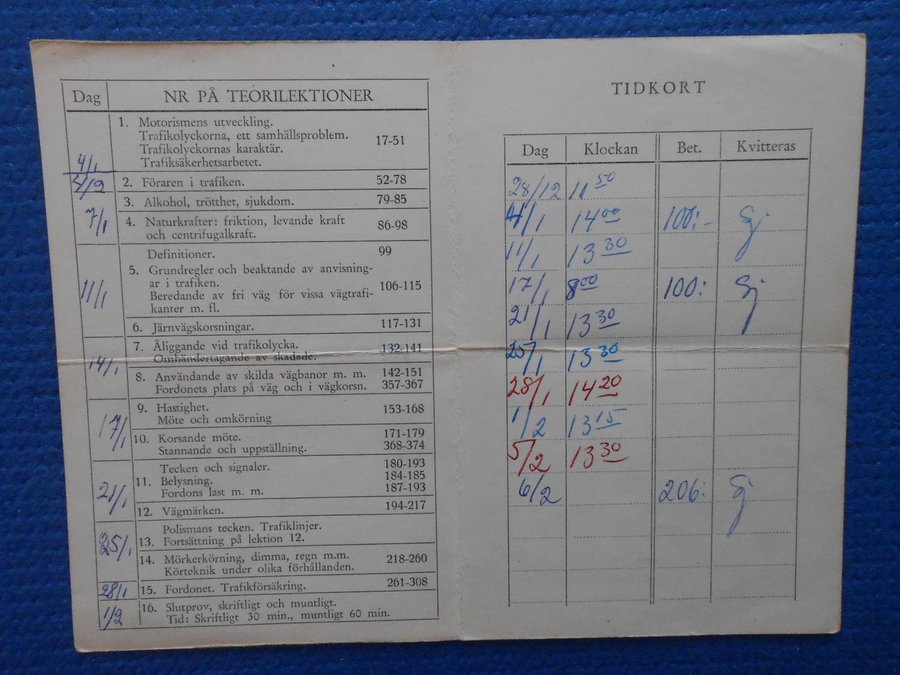 Dag NR PÅ TEORILEKTIONER
1. Motorismens utveckling.
Trafikolyckorna, ett samhällsproblem. 17-51
Trafikolyckornas karaktär.
4/1 Trafiksäkerhetsarbetet.
2. Föraren i trafiken. 52-78
3. Alkohol, trötthet, sjukdom. 79-85
7/1 4. Naturkrafter: friktion, levande kraft 86-98
och centrifugalkraft.
Definitioner. 99
5. Grundregler och beaktande av anvisning-
ar i trafiken. 106-115
11/1 Beredande av fri väg för vissa vägtrafi-
kanter m. fl.
6. Järnvägskorsningar. 117-131
7. Åliggande vid trafikolycka. 132-141
14/1 Omhändertagande av skadade.
8. Användande av skilda vägbanor m. m. 142-151
Fordonets plats på väg och i vägkorsn. 357-367
9. Hastighet. 153-168
Möte och omkörning
17/1 10. Korsande möte. 171-179
Stannande och uppställning. 368-374
Tecken och signaler. 180-193
11. Belysning. 184-185
21/1 Fordons last m. m. 187-193
12. Vägmärken. 194-217
Polismans tecken. Trafiklinjer.
25/1 13. Fortsättning på lektion 12.
14. Mörkerkörning, dimma, regn m.m. 218-260
Körteknik under olika förhållanden.
28/1 15. Fordonet. Trafikförsäkring. 261-308
1/2 16. Slutprov, skriftligt och muntligt.
Tid: Skriftligt 30 min., muntligt 60 min.
TIDKORT
Dag Klockan Bet. Kvitteras
28/12 11 50
4/1 14 00 100:-
11/1 13 30
17/1 8 00 100:
21/1 13 30
25/1 13 30
28/1 14 20
1/2 13 15
5/2 13 30
6/2 206: